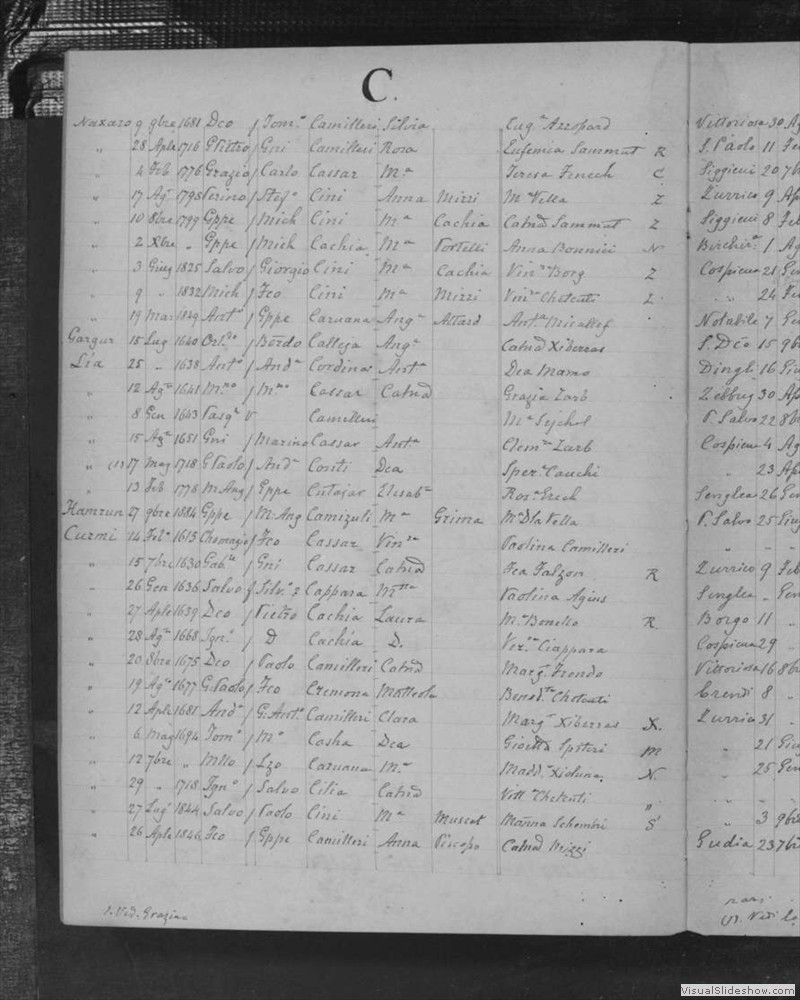 C.
Naxaro 9 9bre 1681 Dco / Tom.o Camilleri Silvia Eug.a Azzopard
" 28 Aple 1716 G Pietro / Gni Camilleri Rosa Eufemia Sammut R
" 4 Feb 1776 Grazio / Carlo Cassar M.a Teresa Fenech C
" 17 Ag. 1798 / Stef.o Cini Anna Mizzi M.a Vella Z
" 10 8bre 1799 Gppe / Mich Cini M.a Cachia Catnd Sammut Z
" 2 Xbre " Gppe / Mich Cachia M.a Portelli Anna Bonnici N
" 3 Giug 1825 Salvo / Giorgio Cini M.a Cachia Vin.a Borg Z
" 9 " 1832 Mich / Fco Cini M.a Mizzi Vin.a Chetcuti Z
" 19 Mar 1849 Ant.o / Gppe Caruana Ang.a Attard Ant.a Micallef
Gargur 15 Lug 1640 Orl.do / Bordo Calleja Ang.a Catnd Xiberras
Lia 25 " 1638 Ant.o / And.a Cordina Ant.a Dea Mamo
" 12 Ag.o 1641 M.no / M.no Cassar Catnd Grazia Zarb
" 8 Gen 1643 Pasq.e V Camilleri M.a Sejchel
" 15 Ag.o 1651 Gni / Marino Cassar Ant.a Clem.a Zarb
" (1) 17 Mag 1718 G Paolo / And.a Conti Dea Sper.a Cauchi
" 13 Feb 1778 M Ang / Gppe Cutajar Elisab.a Ros.a Grech
Hamrun 27 9bre 1884 Gppe / M. Ang Camizuli M.a Grima M.a Dla Vella
Curmi 14 Feb.o 1615 / Fco Cassar Vin.za Paolina Camilleri
" 15 7bre 1630 Gab.le / Gni Cassar Catnd Fca Falzon R
" 26 Gen 1636 Salvo / Silv.o 2 Cappara M.tta Paolina Agius
" 27 Aple 1639 Dco / Pietro Cachia Laura M.a Bonello R
" 28 Ag.o 1668 Ign.o / D Cachia D. Ver.ca Ciappara
" 20 8bre 1675 Dco / Paolo Camilleri Catnd Marg.a Frendo
" 19 Ag.o 1677 G. Paolo / Fco Cremona Matteola Bened.ta Chetcuti
" 12 Aple 1681 And.a / G. Ant.o Camilleri Clara Marg.a Xiberras X.
" 6 Mag 1694 Tom.o / M.o Casha Dea Speteri M
" 12 7bre " Mllo / Lzo Caruana M.a Madd.a Xicluna N
" 29 " 1718 Ign.o / Salvo Cilia Catnd Vitt.a Chetcuti "
" 27 Lug 1844 Salvo / Paolo Cini M.a Muscat Marina Schembri S
" 26 Aple 1846 Fco / Gppe Camilleri Anna Piscopo Catnd Mizzi
1. Ved. Grazian
Vittoriosa 30 Ag
S. Paolo 11 Fe
Siggieui 20 7b
Zurrico 9 Ap
Siggieui 8 Feb
Birchir.a 1 Ag
Cospicua 21 Gen
" 24 Fe
Notabile 7 Ge
S. Dco 15 9b
Dingli 16 Giu
Zebbug 30 Ap
P. Salvo 22 8b
Cospicua 4 Ag
" 23 Ap
Senglea 26 Gen
P. Salvo 25 Giug
" " "
Zurrico 9 Feb
Senglea " Gen
Borgo 11 "
Cospicua 29 "
Vittoriosa 16 8b
Crendi 8 "
Zurrico 31 "
" 21 Giu
" 25 Gen
" " "
" 3 9bre
Gudia 23 7br
(1). Vedi
VisualSlideshow.com